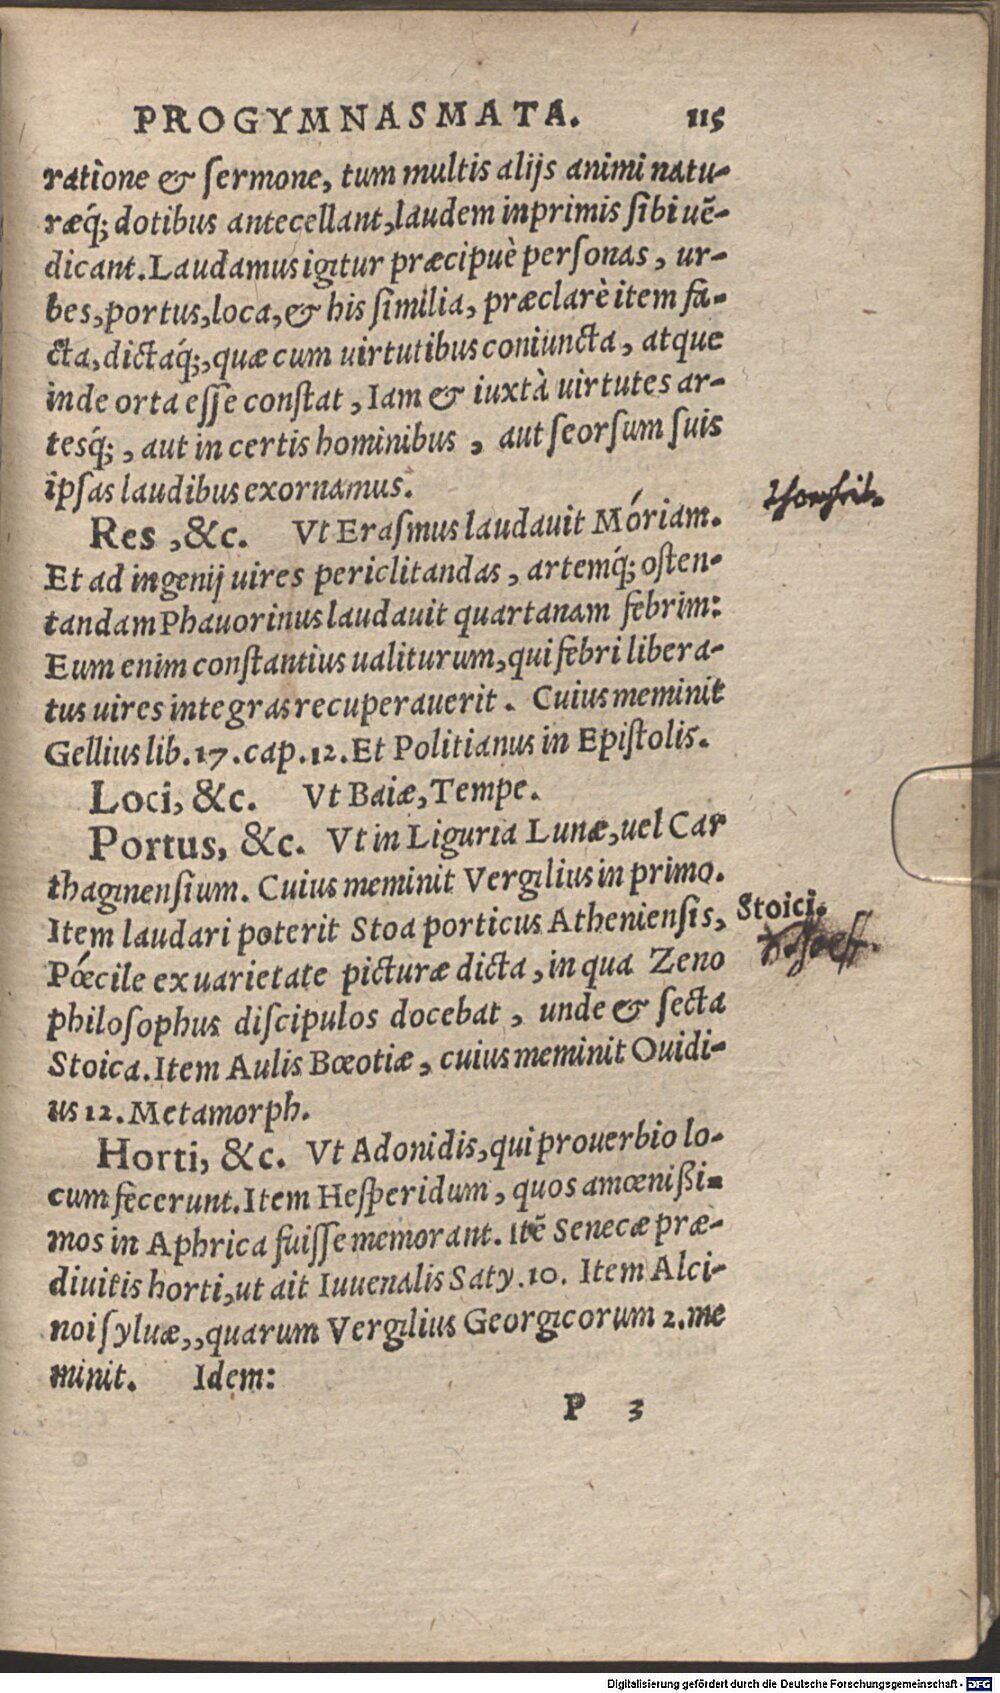 PROGYMNASMATA. 115
ratione & sermone, tum multis alijs animi natu-
ræq́; dotibus antecellant, laudem inprimis sibi uē-
dicant. Laudamus igitur præcipuè personas, ur-
bes, portus, loca, & his similia, præclarè item fa-
cta, dictaq́;, quæ cum uirtutibus coniuncta, atque
inde orta esse constat, Iam & iuxtà uirtutes ar-
tesq́;, aut in certis hominibus, aut seorsum suis
ipsas laudibus exornamus.
Res, &c. Vt Erasmus laudauit Móriam.
Et ad ingenij uires periclitandas, artemq́; osten-
tandam Phauorinus laudauit quartanam febrim:
Eum enim constantius ualiturum, qui febri libera-
tus uires integras recuperauerit. Cuius meminit
Gellius lib. 17. cap. 12. Et Politianus in Epistolis.
Loci, &c. Vt Baiæ, Tempe.
Portus, &c. Vt in Liguria Lunæ, uel Car
thaginensium. Cuius meminit Vergilius in primo.
Item laudari poterit Stoa porticus Atheniensis,
Stoici.
Pœ́cile ex uarietate picturæ dicta, in qua Zeno
philosophus discipulos docebat, unde & secta
Stoica. Item Aulis Bœotiæ, cuius meminit Ouidi-
us 12. Metamorph.
Horti, &c. Vt Adonidis, qui prouerbio lo-
cum fecerunt. Item Hesperidum, quos amœnißi-
mos in Aphrica fuisse memorant. Itē Senecæ præ-
diuitis horti, ut ait Iuuenalis Saty. 10. Item Alci-
noi syluæ,, quarum Vergilius Georgicorum 2. me
minit. Idem:
P 3
Digitalisierung gefördert durch die Deutsche Forschungsgemeinschaft - DFG